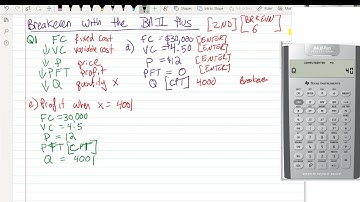 Breakeven with the BAII Plus [2ND] [BREVN 6]
Q1 FC fixed cost
↓ VC variable cost
↓ P price
↓ PFT profit
↓ Q quantity x
d) FC = $30,000 [ENTER]
VC = 4.50 [ENTER]
P = $12 [ENTER]
PFT = 0 [ENTER]
Q [CPT] 4000 Breakeven
e) Profit when x = 4001
FC = 30,000
VC = 4.5
P = 12
PFT [CPT]
Q = 4001
Q
TEXAS INSTRUMENTS